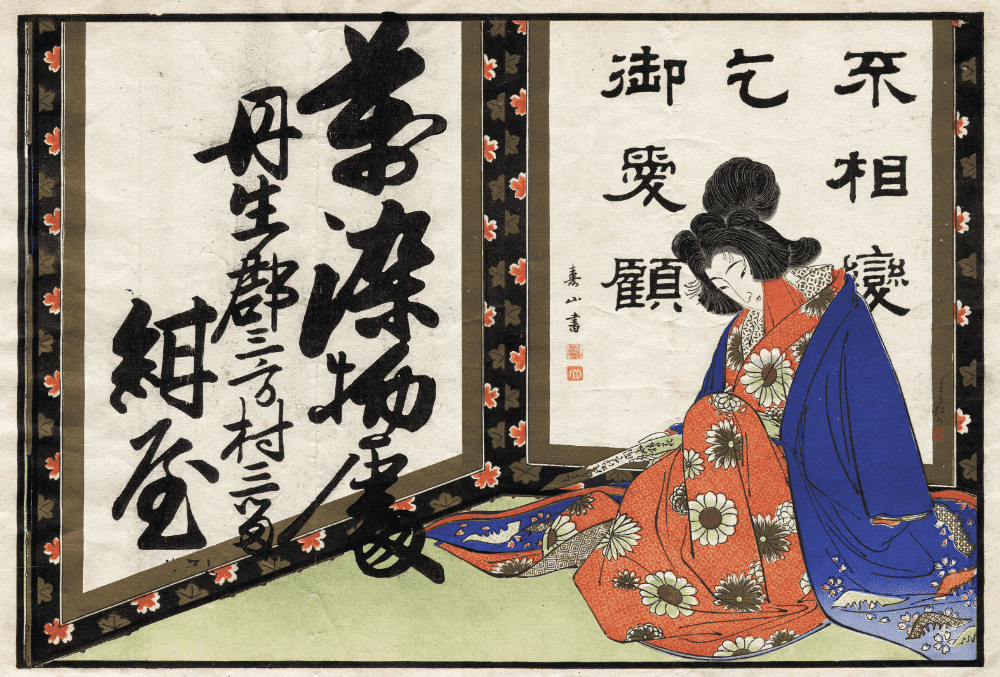 不相變
乞
御愛顧
壽山書
萬染物處
丹生郡三方村三留
紺屋